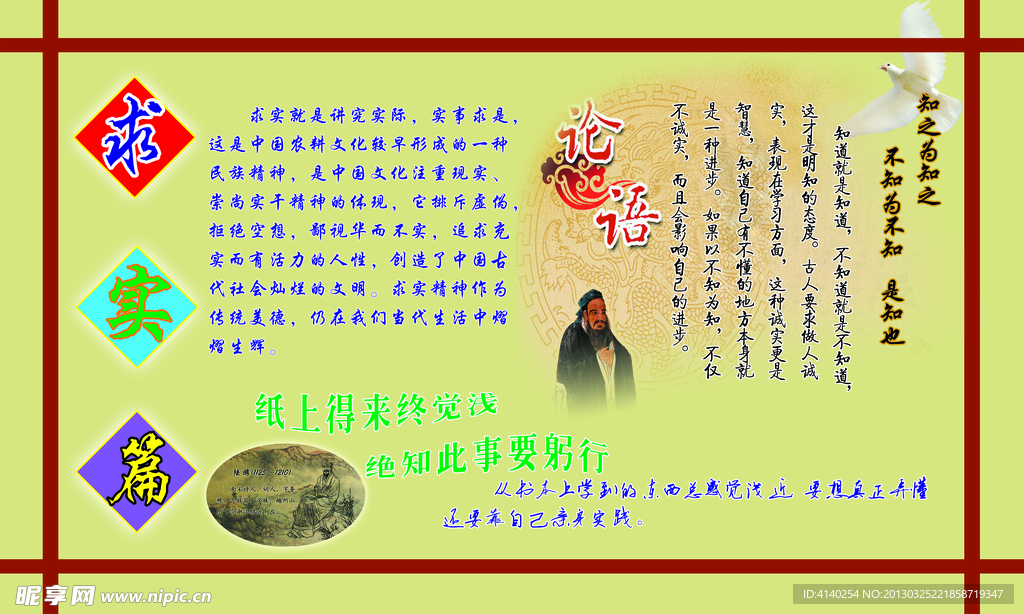 求
实
篇
求实就是讲究实际，实事求是，
这是中国农耕文化较早形成的一种
民族精神，是中国文化注重现实、
崇尚实干精神的体现，它排斥虚伪，
拒绝空想，鄙视华而不实，追求充
实而有活力的人性，创造了中国古
代社会灿烂的文明。求实精神作为
传统美德，仍在我们当代生活中熠
熠生辉。
论
语
知之为知之
不知为不知 是知也
知道就是知道，不知道就是不知道，
这才是明知的态度。古人要求做人诚
实，表现在学习方面，这种诚实更是
智慧，知道自己有不懂的地方本身就
是一种进步。如果以不知为知，不仅
不诚实，而且会影响自己的进步。
纸上得来终觉浅
绝知此事要躬行
(1125-1210)
从书本上学到的东西总感觉浅近 要想真正弄懂
还要靠自己亲身实践。
昵享网 www.nipic.cn
ID:4140254 NO:20130325221858719347